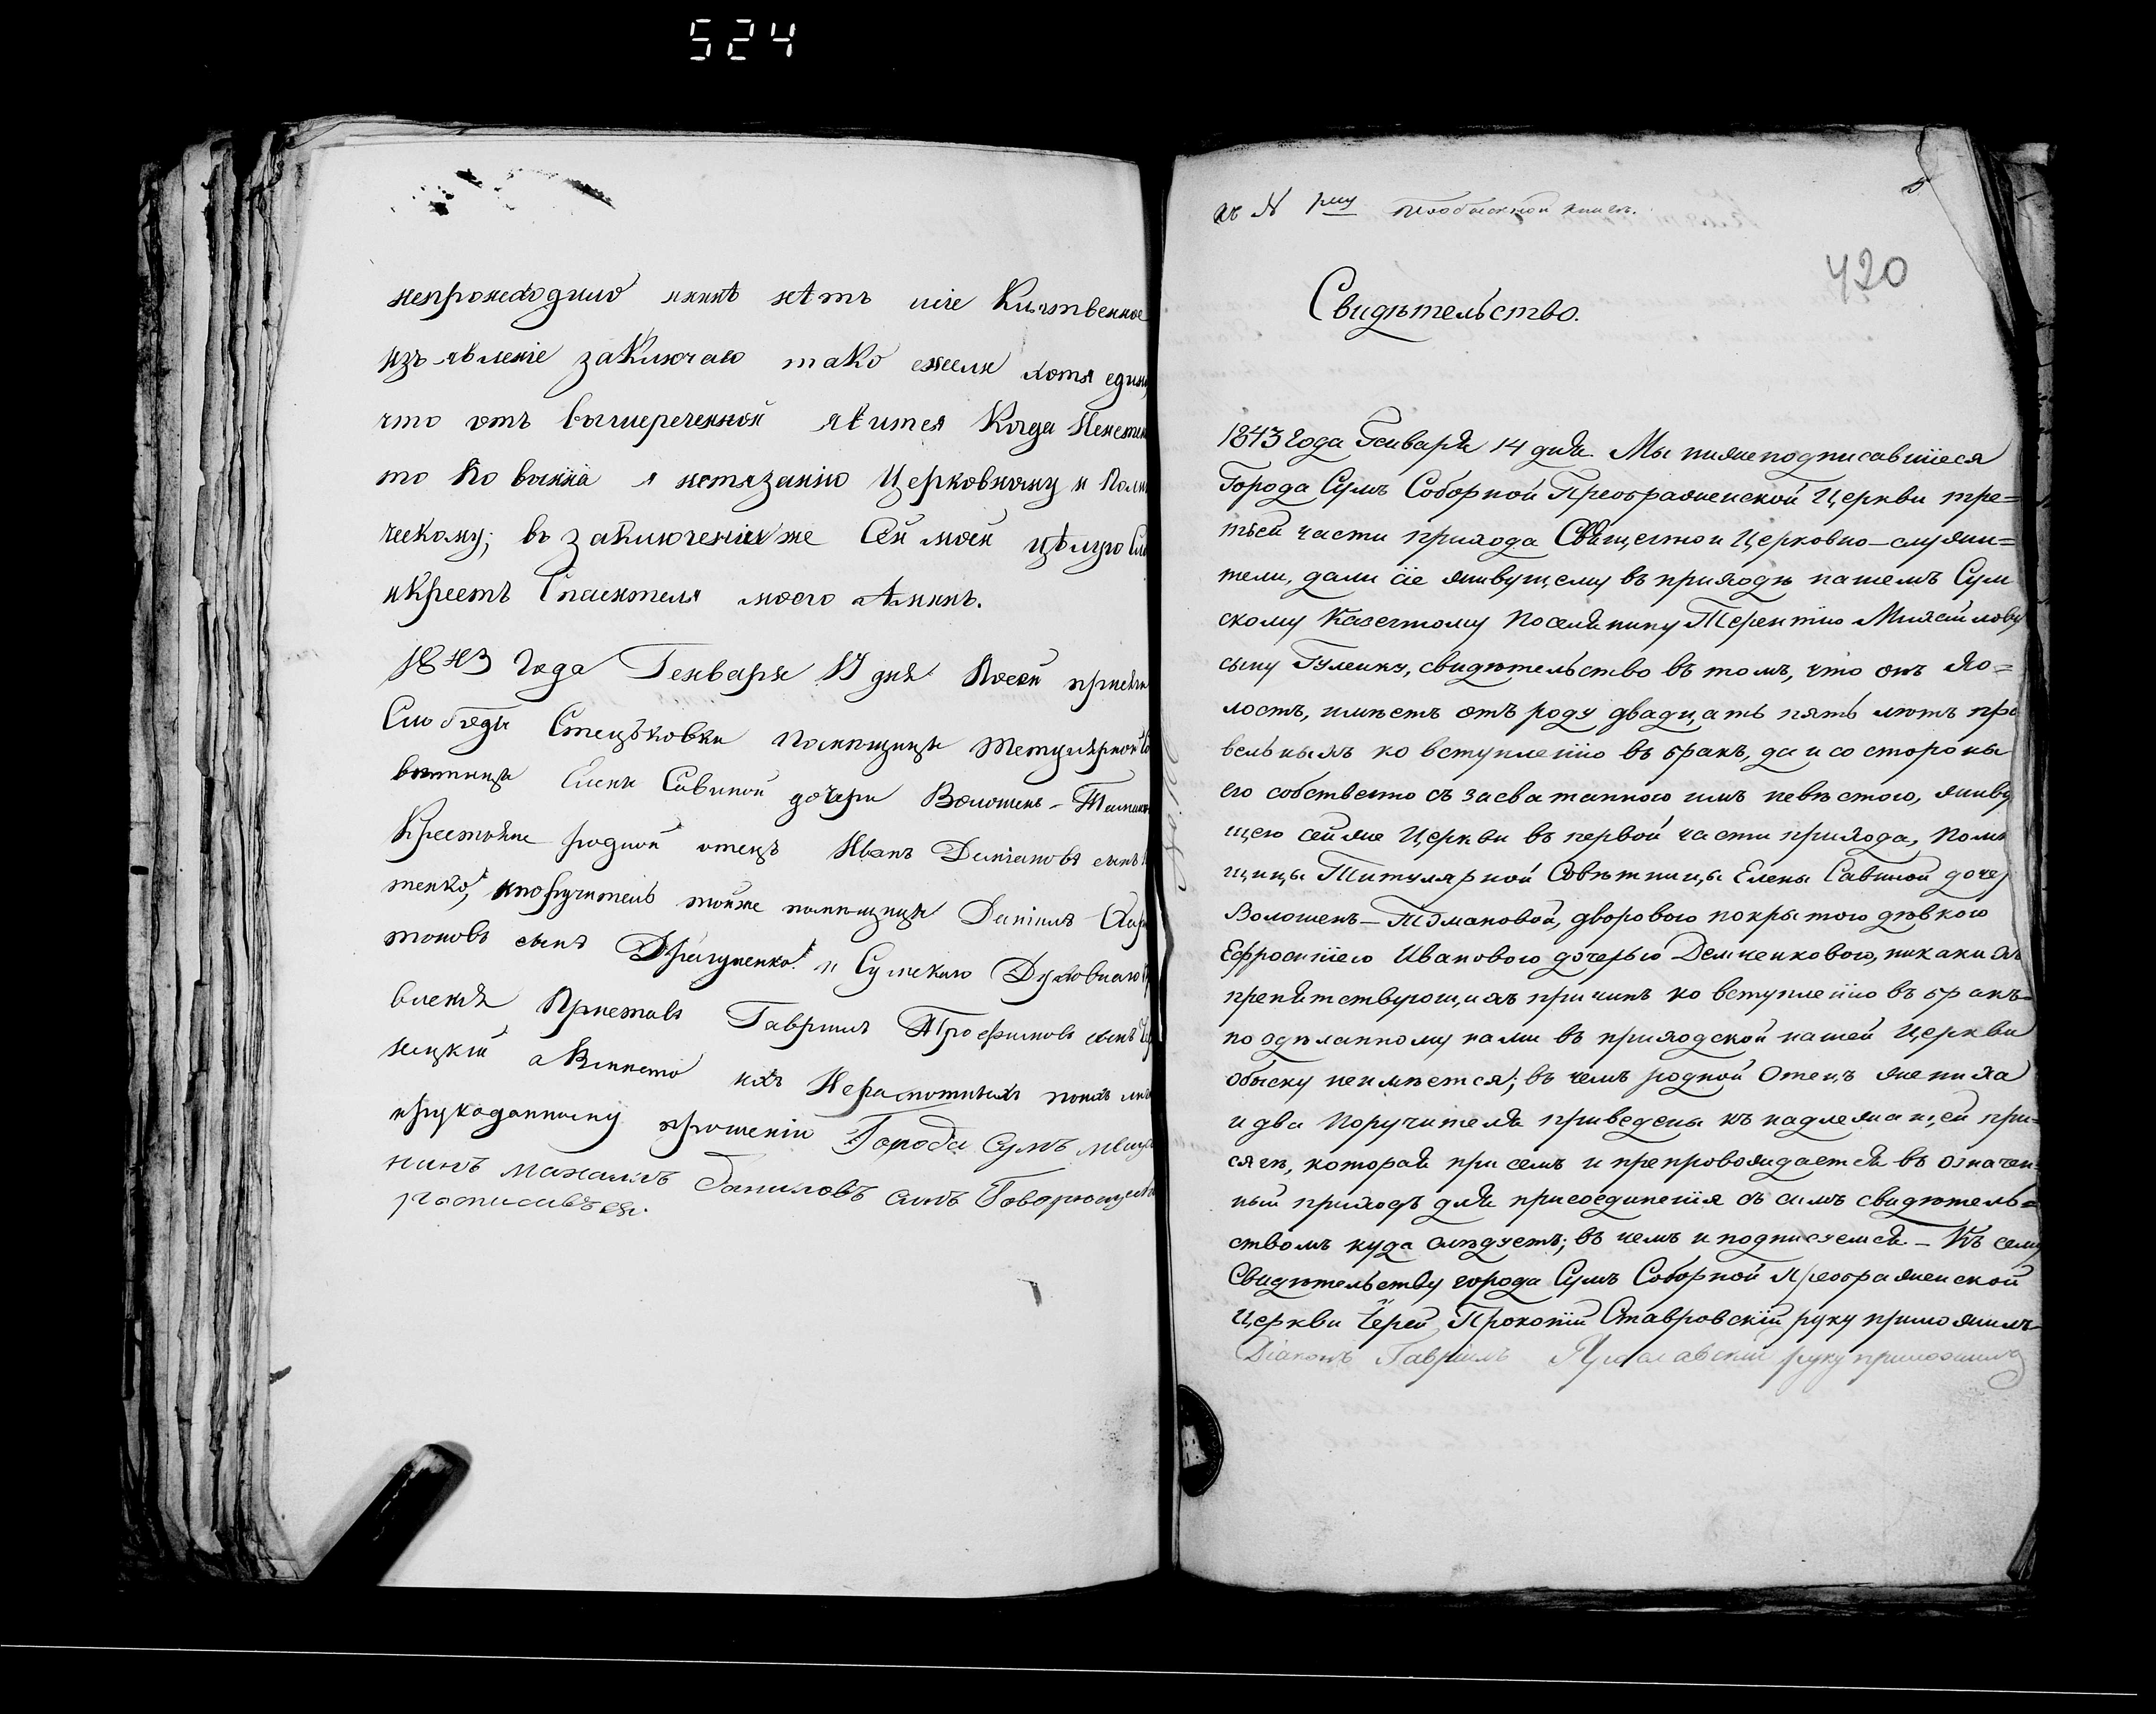 524
непроисходило инынѣ нѣтъ сіе Клятвенное
изъявленіе заключаю тако ежели хотя едино
что отъ вышереченной явится Когда
то повинна я истязанію Церковному и
ческому; въ заключеніиже Сей моей цѣлую
икрестъ Спасителя моего Аминь.
1843 года Генваря 17 дня Ксей
Слободы Стецьковки помѣщицы Титулярной
вѣтницы Елены Савиной дочери Волошень-
Крестьяне родной отецъ Иванъ Даміановъ сынъ
тенко, ипоручитель тойже помѣщицы Даніилъ
тоновъ сынъ Драгуненко. и Сумскаго Духовнаго
вленія Приставъ Гавріилъ Трофимовъ сынъ
ницкій авмѣсто ихъ Неграмотныхъ поихъ
ирукоданному прошенію Города Сумъ
нинъ Михаилъ Даниловъ синъ
росписавься.
къ № 1му пообыскной книгѣ.
5
420
Свидѣтельство.
1843 года Генваря 14 дня. Мы нижеподписавшіеся
Города Сумъ Соборной Преображенской Церкви тре=
тьей части прихода Священно и Церковно-служи=
тели, дали сіе живущему въ приходѣ нашемъ Сум
скому Казенному Поселянину Терентію Михайлову
сыну Гуленку, свидѣтельство въ томъ, что онъ хо=
лостъ, имѣетъ отъ роду двадцать пять лѣтъ пра
вельныхъ ко вступленію въ бракъ, да и со стороны
его собственно съ засватанною имъ невѣстою, живу
щею сейже Церкви въ первой части прихода, Помѣ
щицы Титулярной Совѣтницы Елены Савиной доче
Волошенъ-Тимановой, дворовою покрытою дѣвкою
Ефросиніею Ивановою дочерью Демченковою, никакихъ
препятствующихъ причинъ ко вступленію въ бракъ
по одѣланному нами въ приходской нашей Церкви
обыску неимѣется; въ чемъ родной Отецъ жениха
и два Поручителя приведены къ надлежащей при=
сягѣ, которая при семъ и препровождается въ означен=
ный приходъ для присоединенія съ симъ свидѣтель=
ствомъ куда слѣдуетъ; въ чемъ и подписуемся - Къ сему
Свидѣтельству города Сумъ Соборной Преображенской
Церкви Іерей Прокопій Ставровскій руку приложилъ
Діаконъ Гавріилъ руку приложилъ